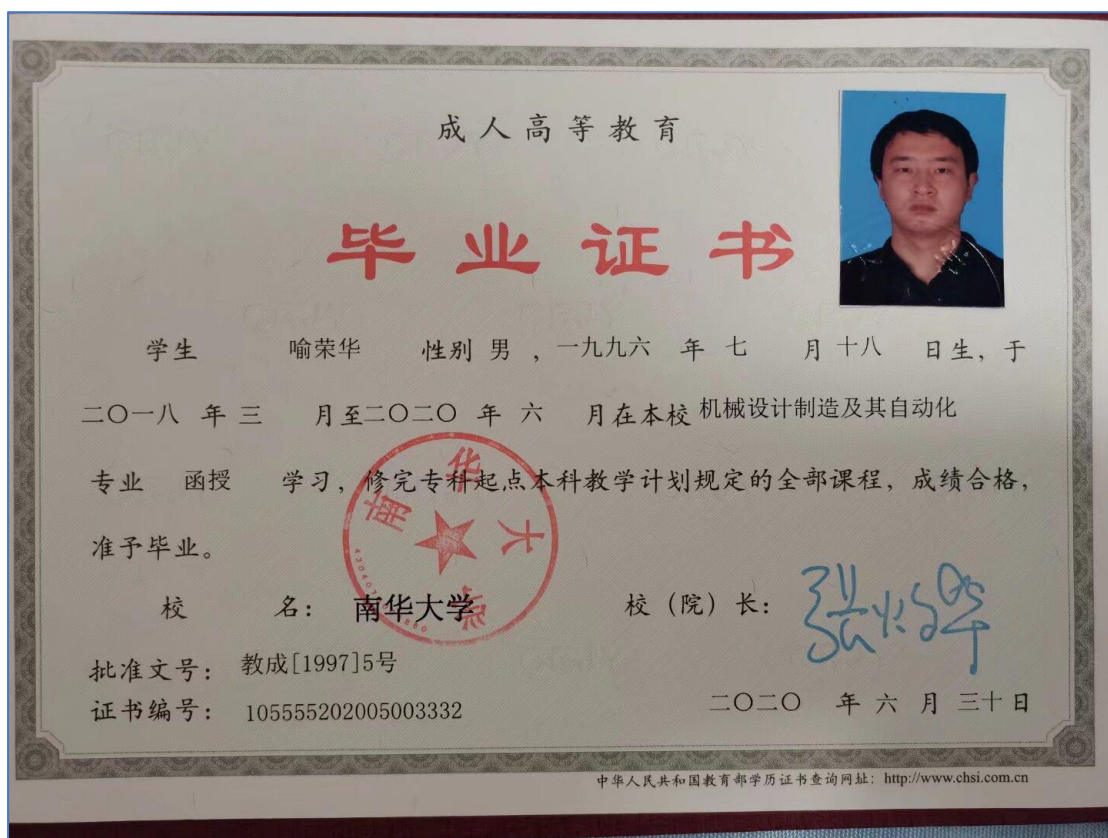 成人高等教育
毕业证书
学生 喻荣华 性别 男 ，一九九六 年 七 月 十八 日生，于
二〇一八 年 三 月至二〇二〇 年 六 月在本校 机械设计制造及其自动化
专业 函授 学习，修完专科起点本科教学计划规定的全部课程，成绩合格，
准予毕业。
南华大学
校 名：南华大学 校（院）长：
批准文号：教成[1997]5号
证书编号：105555202005003332
二〇二〇 年 六 月 三十 日
中华人民共和国教育部学历证书查询网址：http://www.chsi.com.cn